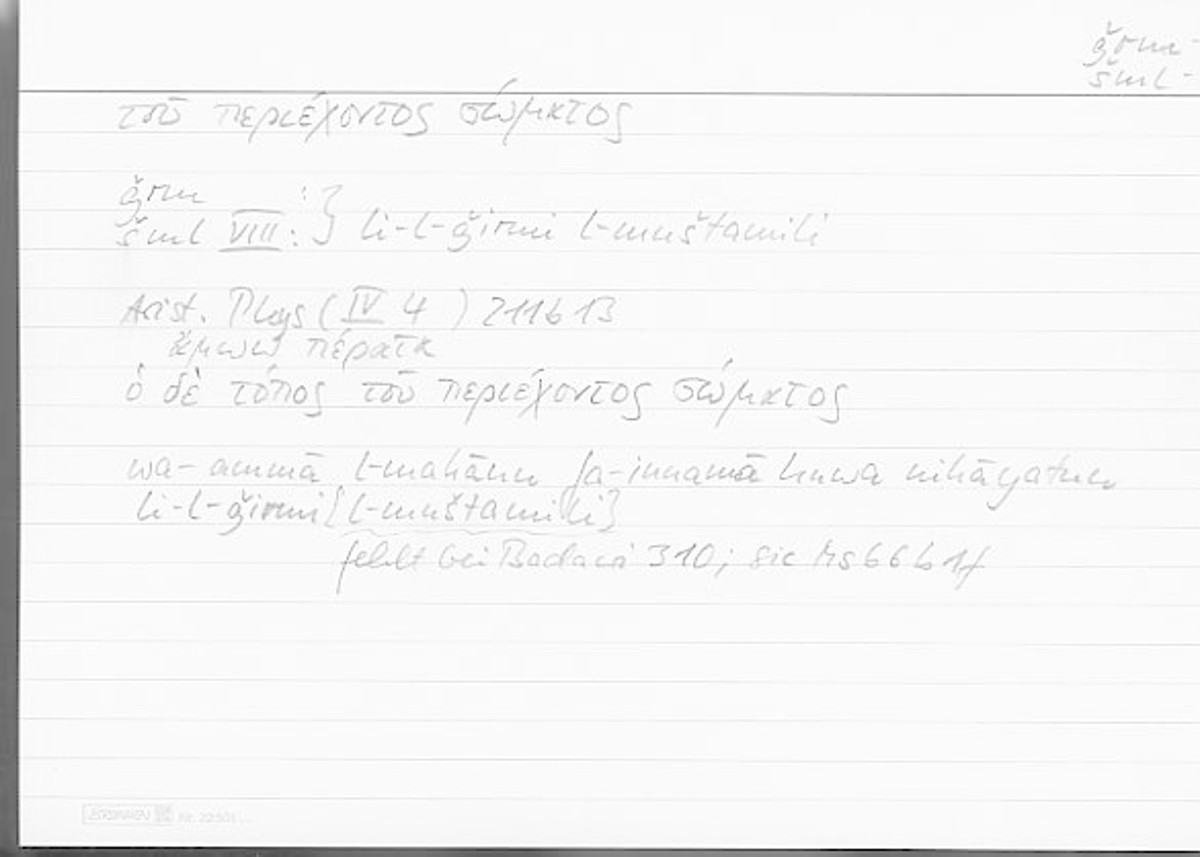 ǧrm -
šml -
τοῦ περιέχοντος σώματος
ǧrm :
šml VIII : } li-l-ǧirmi l-muštamili
Arist. Phys (IV 4 ) 211b13
πέρατα
ὁ δὲ τόπος τοῦ περιέχοντος σώματος
wa-ammā l-makānu fa-innamā huwa nihāyatun
li-l-ǧirmi [l-muštamili]
fehlt bei Badawi 310; sic Ms 66b1f
Nr. 22 501